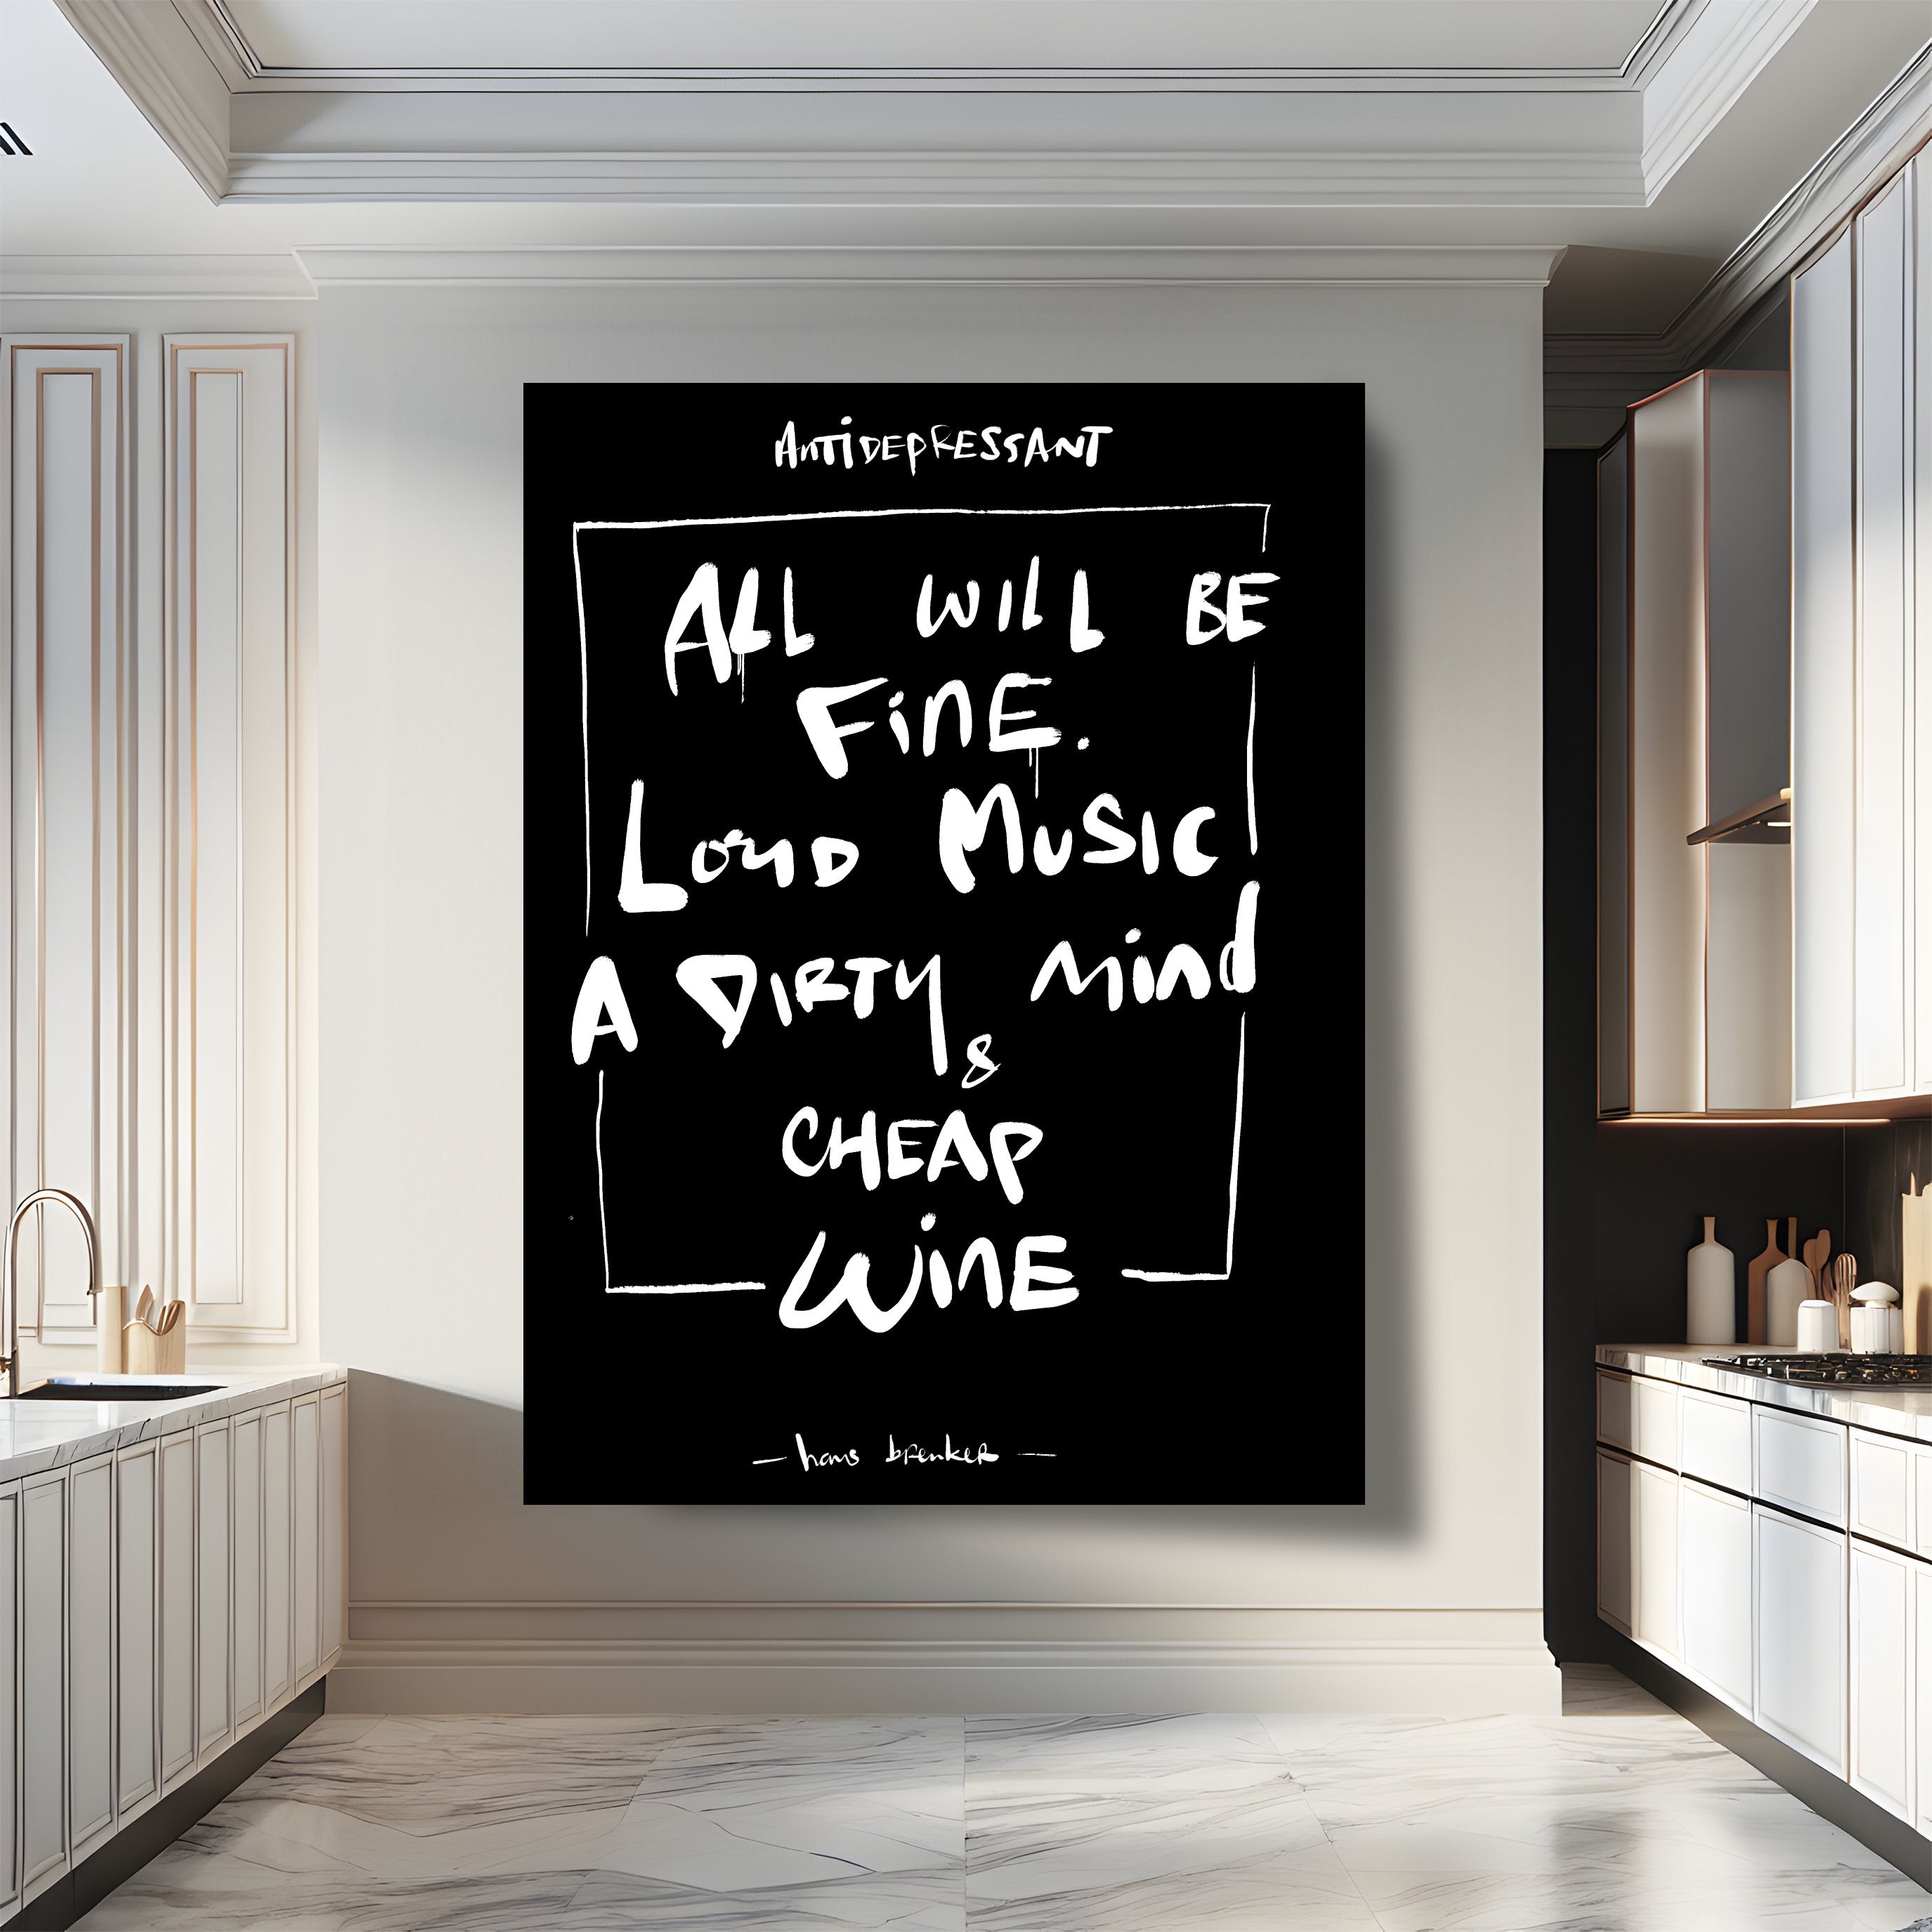 AnTiDEPRESSANT
ALL WiLL BE
FinE.
LouD MuSIC
A DIRTY Mind
&
CHEAP
WinE
— hans brenkeR —